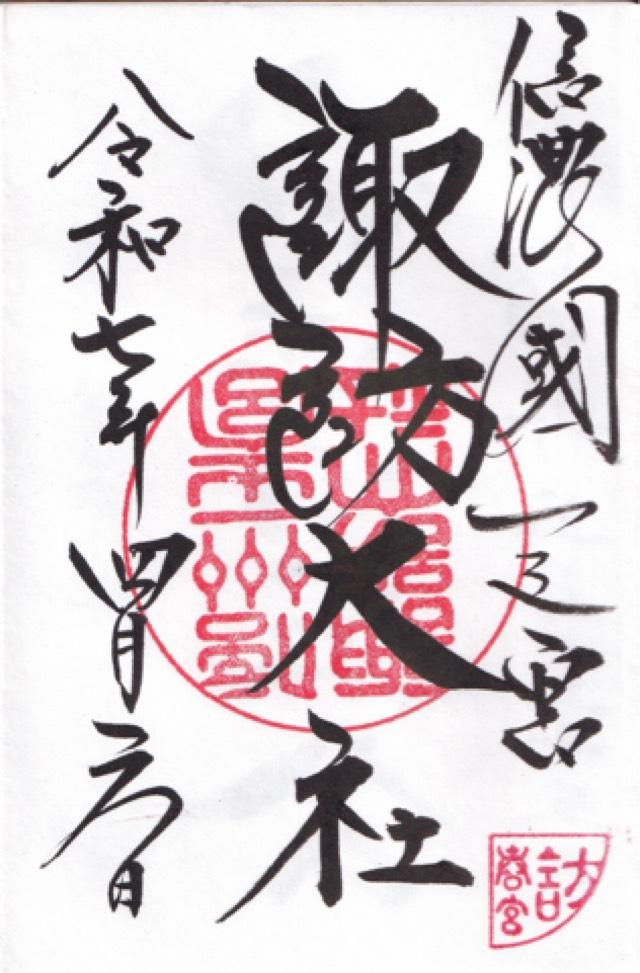 信濃國一之宮
諏訪大社
令和七年四月六日
春宮